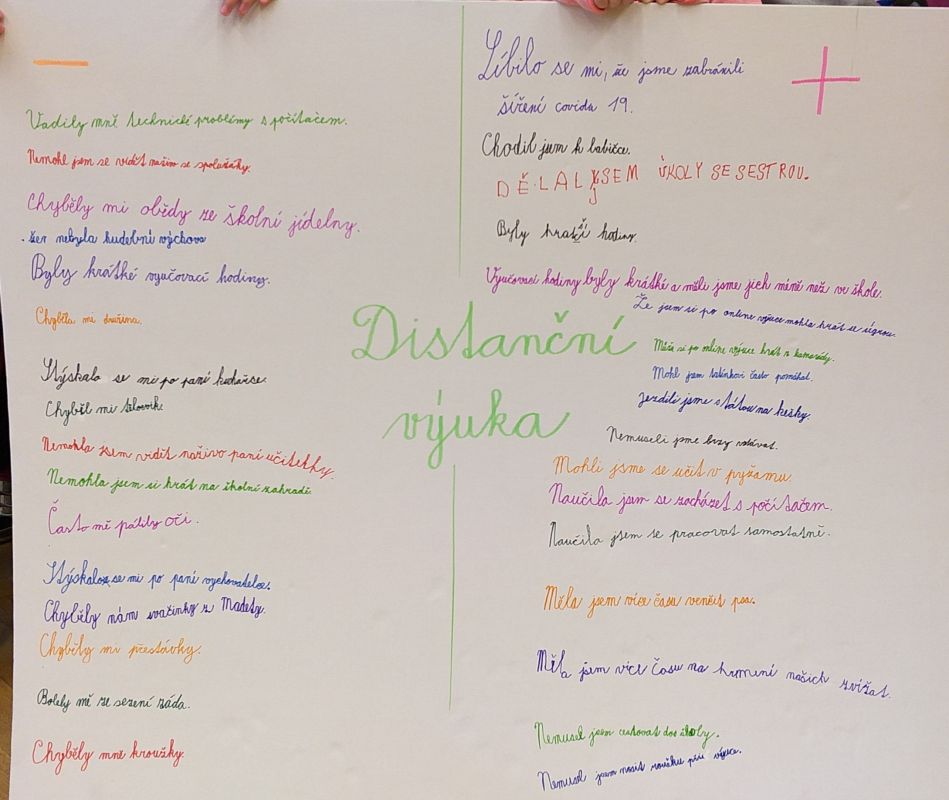 Vadily mně technické problémy s počítačem.
Nemohl jsem se vidět naživo se spolužáky.
Chyběly mi obědy ze školní jídelny.
že nebyla hudební výchova
Byly krátké vyučovací hodiny.
Chyběla mi družina.
Stýskalo se mi po paní kuchařce.
Chyběl mi tělocvik.
Nemohla jsem vidět naživo paní učitelky.
Nemohla jsem si hrát na školní zahradě.
Často mě pálily oči.
Stýskalo se mi po paní vychovatelce.
Chyběly nám svačinky z Madety.
Chyběly mi přestávky.
Bolely mě ze sezení záda.
Chyběly mně kroužky.
Distanční
výuka
Líbilo se mi, že jsme zabránili
šíření covidu 19.
Chodil jsem k babičce.
DĚLAL JSEM ÚKOLY SE SESTROU.
Byly kratší hodiny.
Vyučovací hodiny byly krátké a měli jsme jich méně než ve škole.
Že jsem si po online výuce mohla hrát se ségrou.
si po online výuce hrát s kamarády.
Mohl jsem tatínkovi často pomáhat.
Jezdili jsme s tátou na kešky.
Nemuseli jsme brzy vstávat.
Mohli jsme se učit v pyžamu.
Naučila jsem se zacházet s počítačem.
Naučila jsem se pracovat samostatně.
Měla jsem více času venčit psa.
Měla jsem více času na krmení našich zvířat.
Nemusel jsem cestovat do školy.
Nemusel jsem nosit roušku při výuce.